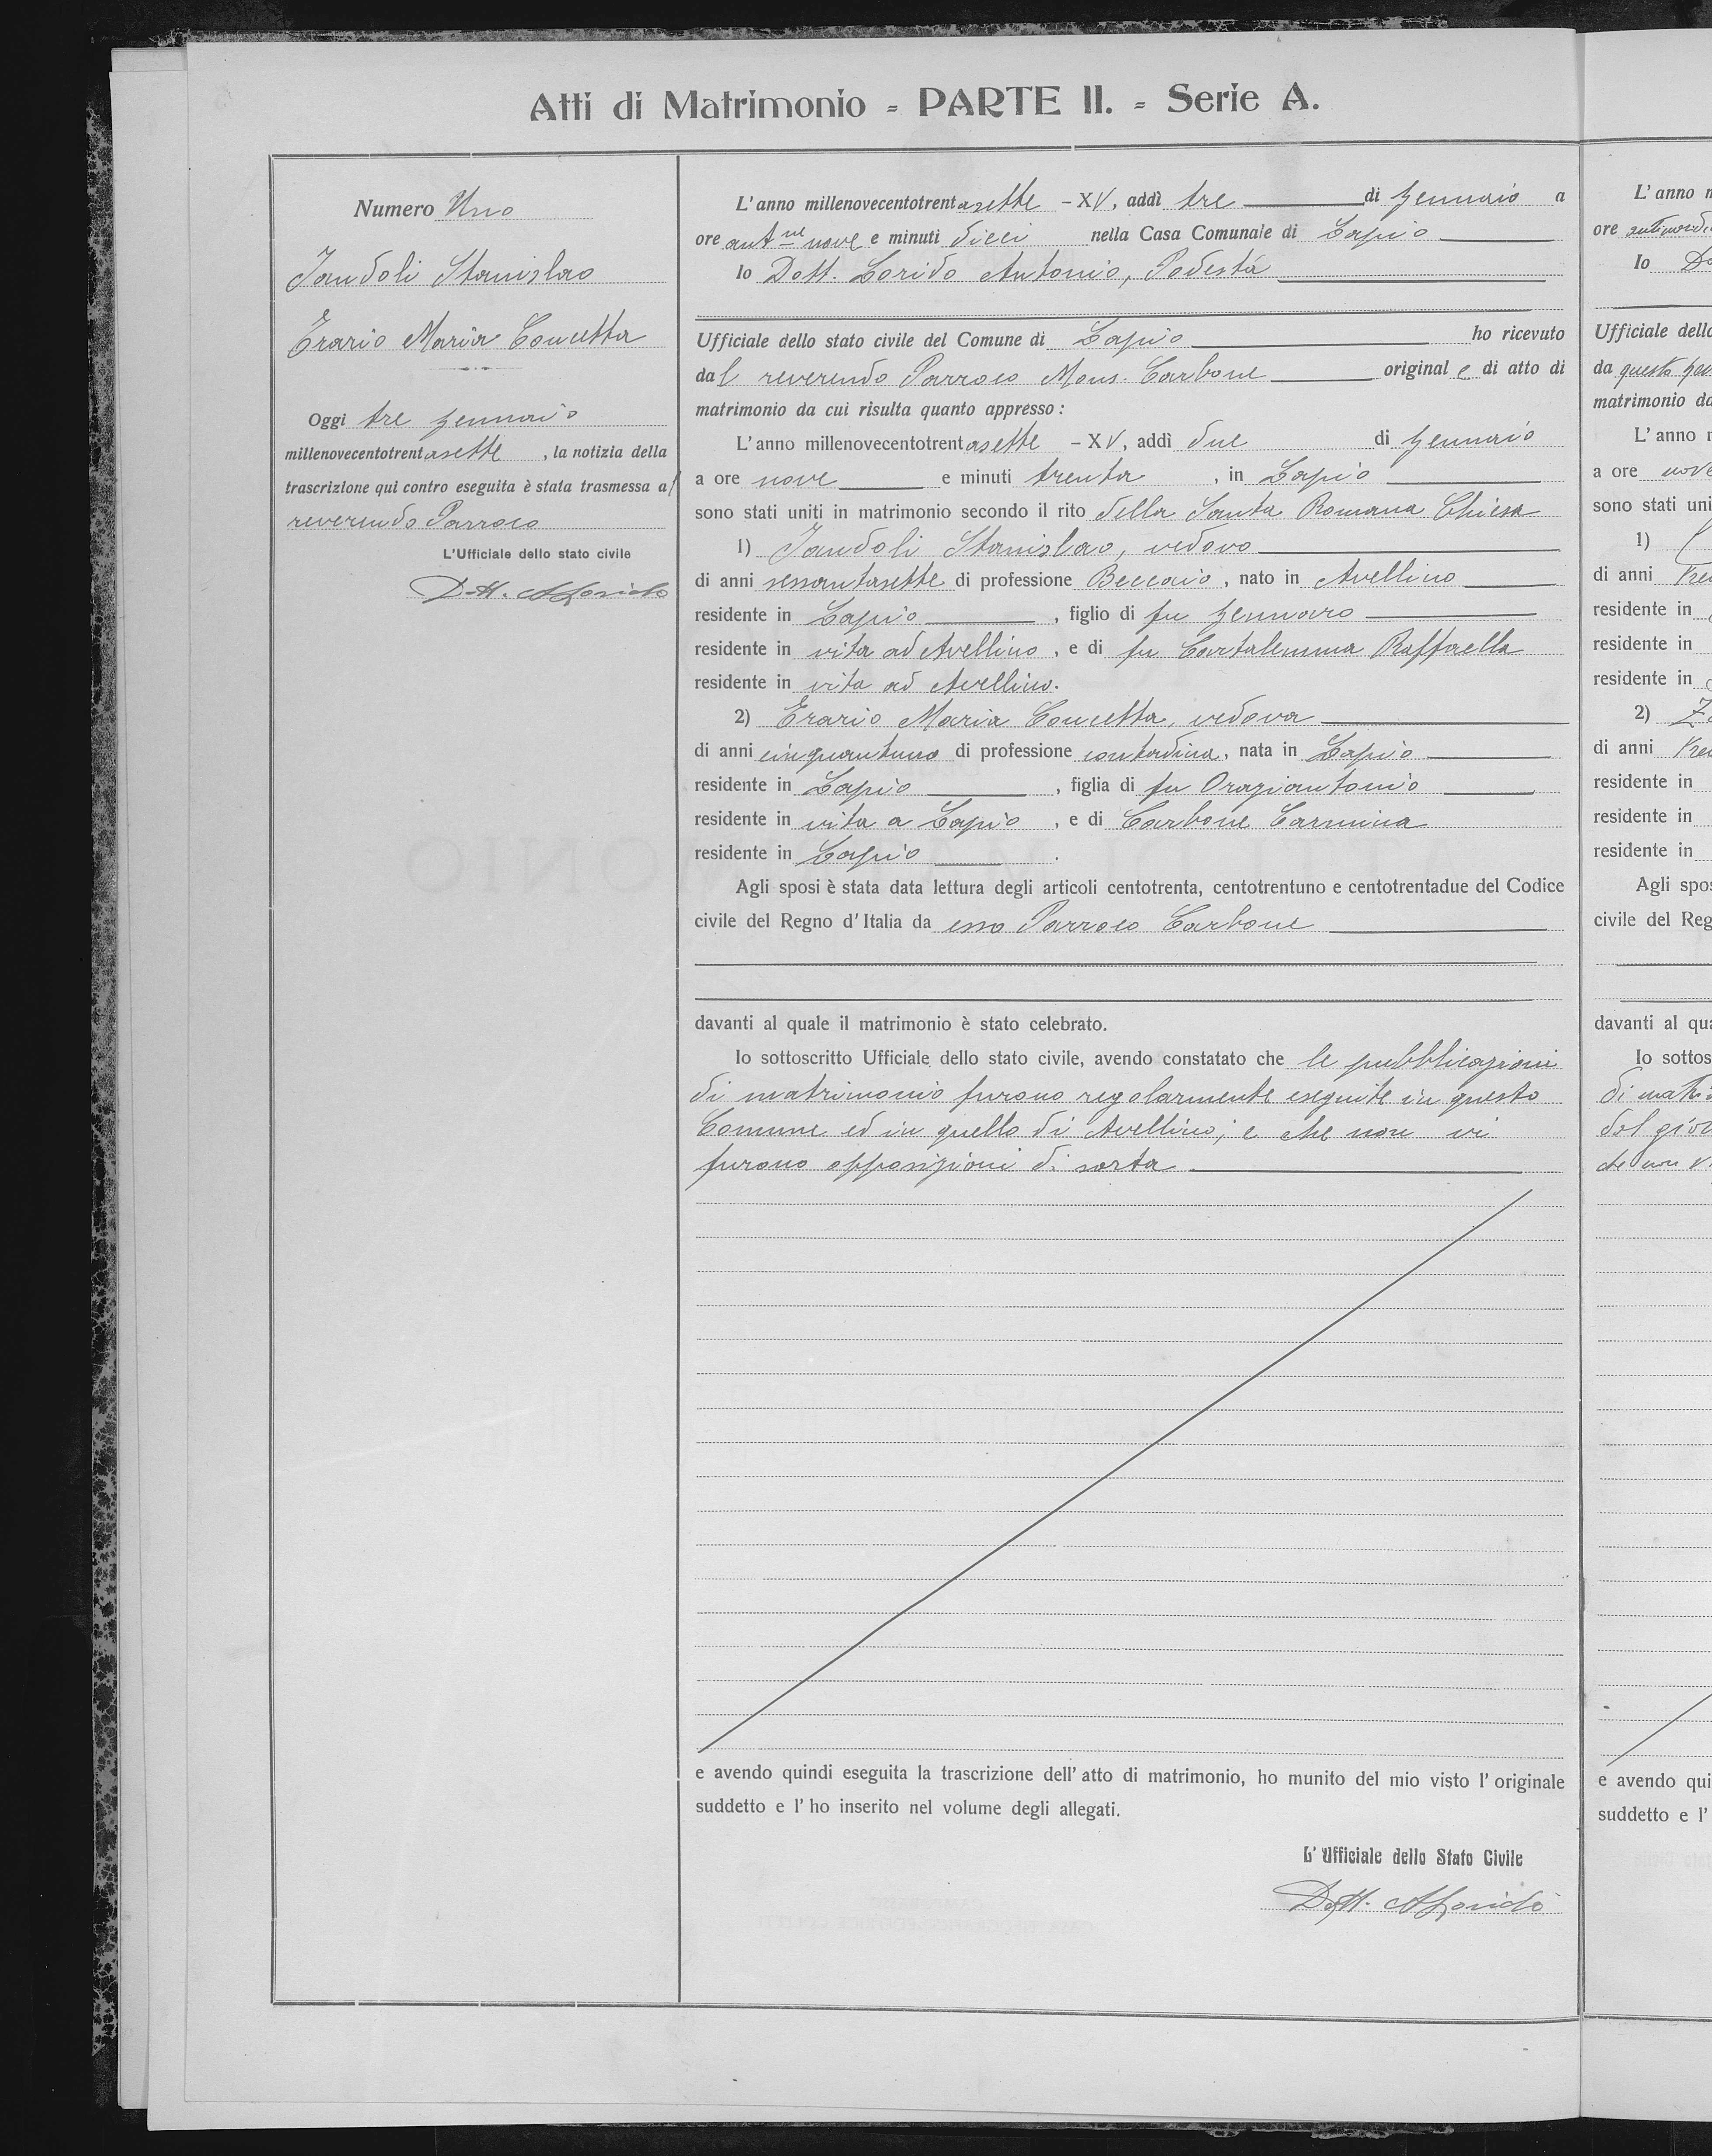 Atti di Matrimonio = PARTE II. = Serie A.
Numero Uno
Iandoli Stanislao
Erario Maria Concetta
Oggi tre gennaio
millenovecentotrentasette , la notizia della
trascrizione qui contro eseguita è stata trasmessa al
reverendo Parroco
L'Ufficiale dello stato civile
Dott. A Lorido
L'anno millenovecentotrentasette - XV, addì tre di gennaio a
ore ant.ne nove e minuti dieci nella Casa Comunale di Lapio
Io Dott. Lorido Antonio, Podestà
Ufficiale dello stato civile del Comune di Lapio ho ricevuto
dal reverendo Parroco Mons. Carbone originale di atto di
matrimonio da cui risulta quanto appresso:
L'anno millenovecentotrentasette - XV, addì due di gennaio
a ore nove e minuti trenta , in Lapio
sono stati uniti in matrimonio secondo il rito della Santa Romana Chiesa
1) Iandoli Stanislao, vedovo
di anni sessantasette di professione Beccaio, nato in Avellino
residente in Lapio , figlio di fu Gennaro
residente in vita ad Avellino, e di fu Raffaella
residente in vita ad Avellino.
2) Erario Maria Concetta, vedova
di anni cinquantuno di professione contadina, nata in Lapio
residente in Lapio , figlia di fu Oraziantonio
residente in vita a Lapio , e di Carbone Carmina
residente in Lapio .
Agli sposi è stata data lettura degli articoli centotrenta, centotrentuno e centotrentadue del Codice
civile del Regno d'Italia da esso Parroco Carbone
davanti al quale il matrimonio è stato celebrato.
Io sottoscritto Ufficiale dello stato civile, avendo constatato che le pubblicazioni
di matrimonio furono regolarmente eseguite in questo
Comune ed in quello di Avellino; e che non vi
furono opposizioni di sorta
e avendo quindi eseguita la trascrizione dell'atto di matrimonio, ho munito del mio visto l'originale
suddetto e l'ho inserito nel volume degli allegati.
L'Ufficiale dello Stato Civile
Dott. A Lorido
L'anno
ore
Io
Ufficiale dello
da questa
matrimonio da
L'anno
a ore nove
sono stati uni
1)
di anni
residente in
residente in
residente in
2)
di anni
residente in
residente in
residente in
Agli spos
civile del Reg
davanti al qua
Io sottos
di
del
che non v
e avendo qui
suddetto e l'